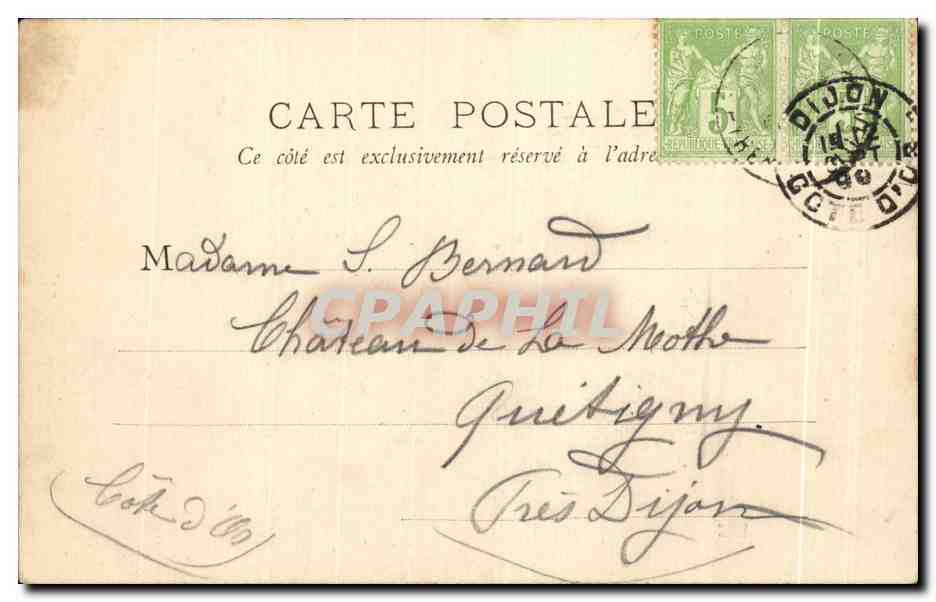 CARTE POSTALE
Ce côté est exclusivement réservé à l'adre
POSTE POSTE
5
DIJON
COTE D'OR
Madame S. Bernard
CPAPHIL
Château de La Mothe
Quétigny.
Près Dijon
Côte d'Or